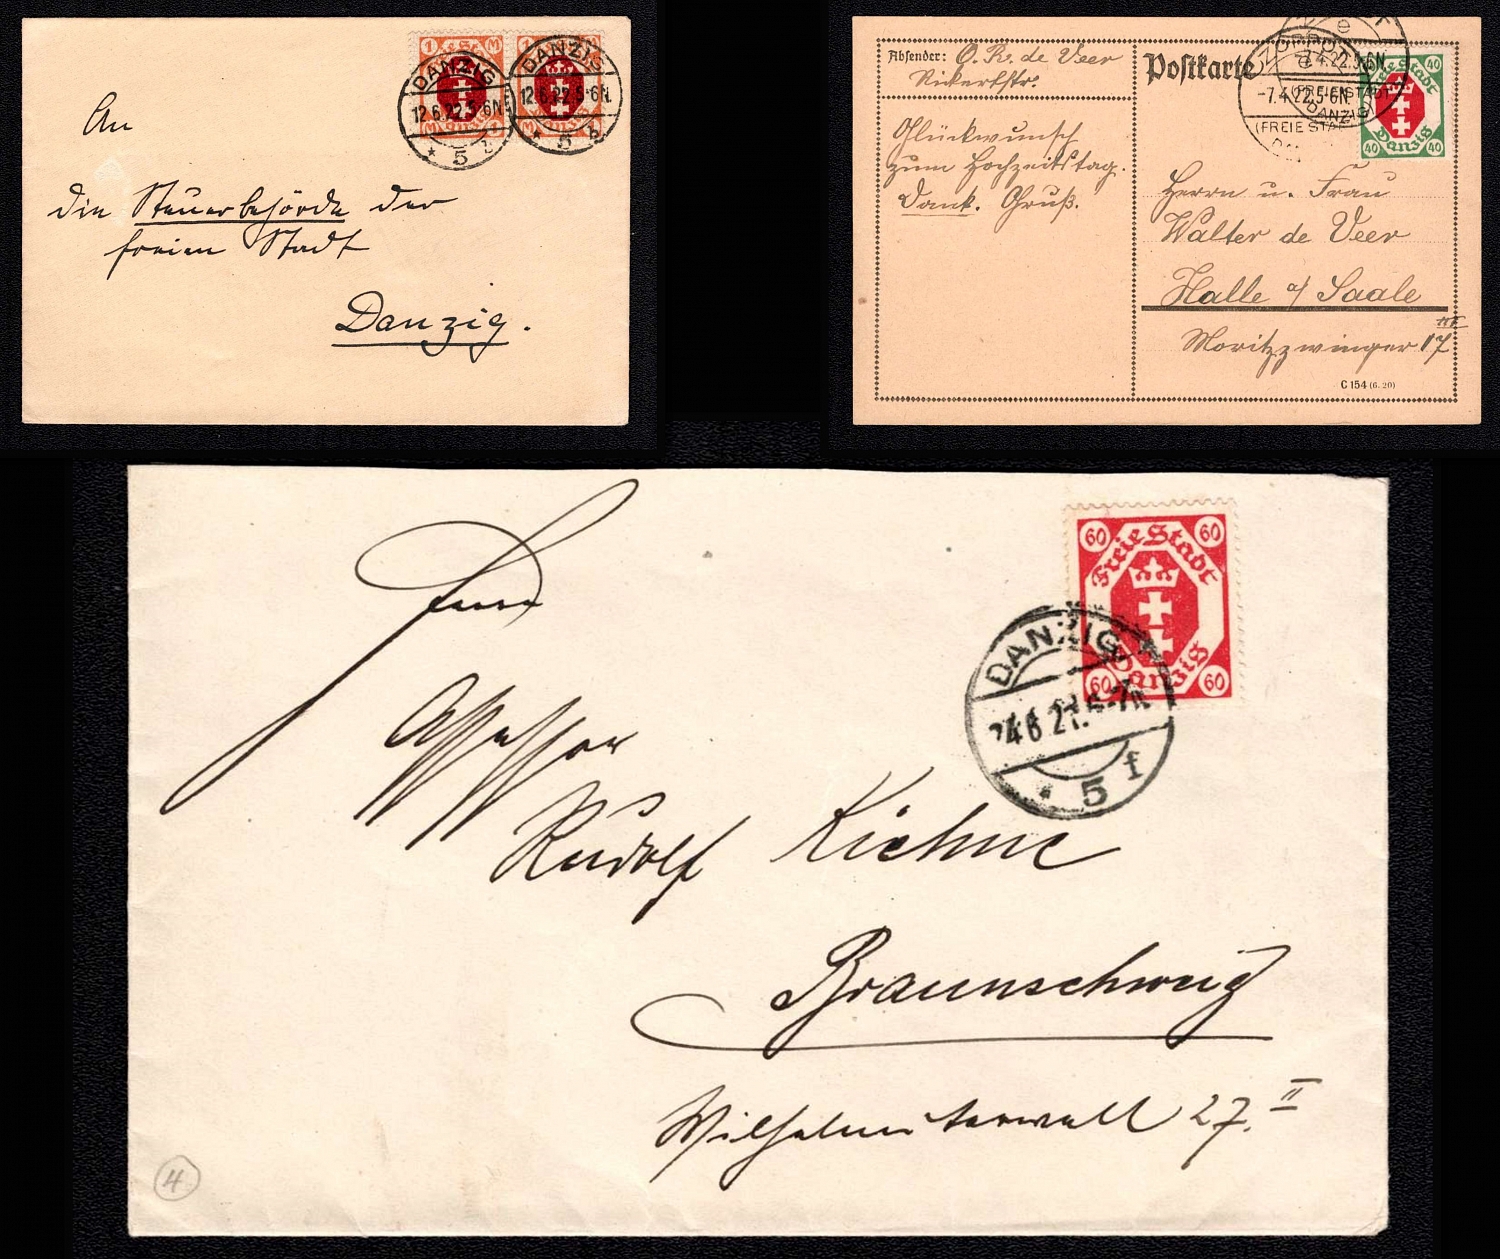 1 M
M 1
DANZIG
12.6.22.5-6N.
* 5 b
DANZIG
12.6.22.5-6N.
* 5 b
An
die Steuerbehörde der
freien Stadt
Danzig.
Absender: O. R. de Veer
Rickertstr.
Glückwunsch
zum Hochzeitstag.
Dank. Gruß.
Postkarte
ZOPPOT
-7.4.22.5-6N
(FREIE STADT
DANZIG)
-7.4.22.5-6N.
(FREIE STA
40
Freie Stadt
Danzig
40 40
Herrn u. Frau
Walter de Veer
Halle a/ Saale
Moritzzwinger 17 III
C 154 (6. 20)
60 60
Freie Stadt
Danzig
60 60
DANZIG
24.6.21.6-7N.
* 5 f
Herrn
Assessor
Rudolf Kiehne
Braunschweig
Wilhelmitorwall 27. II
4